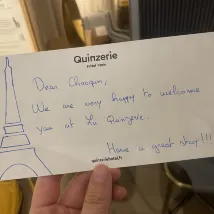 Quinzerie
Dear Chaoqun,
We are very happy to welcome
you at La Quinzerie.
Have a great stay!!!
quinzeriehotel.fr